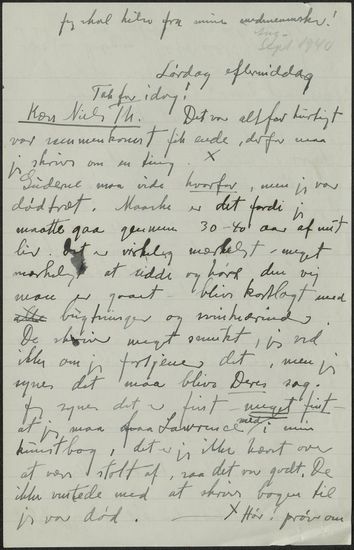 Jeg skal hilse fra mine medmennesker!
Aug-
Sept 1940
Lørdag eftermiddag
Tak for idag!
Kære Niels Th. Det var altfor hurtigt
vor sammenkomst fik ende, derfor maa
jeg skrive om en ting. X
Guderne maa vide hvorfor, men jeg var
dødtræt. Maaske er det fordi jeg
maatte gaa gennem 30-40 aar af mit
liv, det er virkelig mærkeligt - meget
mærkeligt at sidde og høre den vej
man er gaaet - blive kortlagt med
alle bugtninger og svinkeærinder.
De skriver meget smukt, jeg ved
ikke om jeg fortjener det, men jeg
synes det maa blive Deres sag.
Jeg synes det er fint - meget fint -
at jeg maa faa Lawrence med i min
kunstbog, det er jeg ikke bort over
at være stolt af, saa det var godt De
ikke ventede med at skrive bogen til
jeg var død. X Hør! prøv om